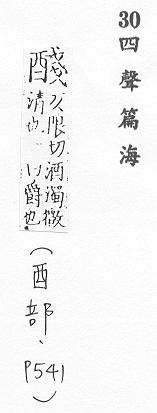 30 四聲篇海
醆 限切酒濁微
清也 爵也
(酉部、P541)